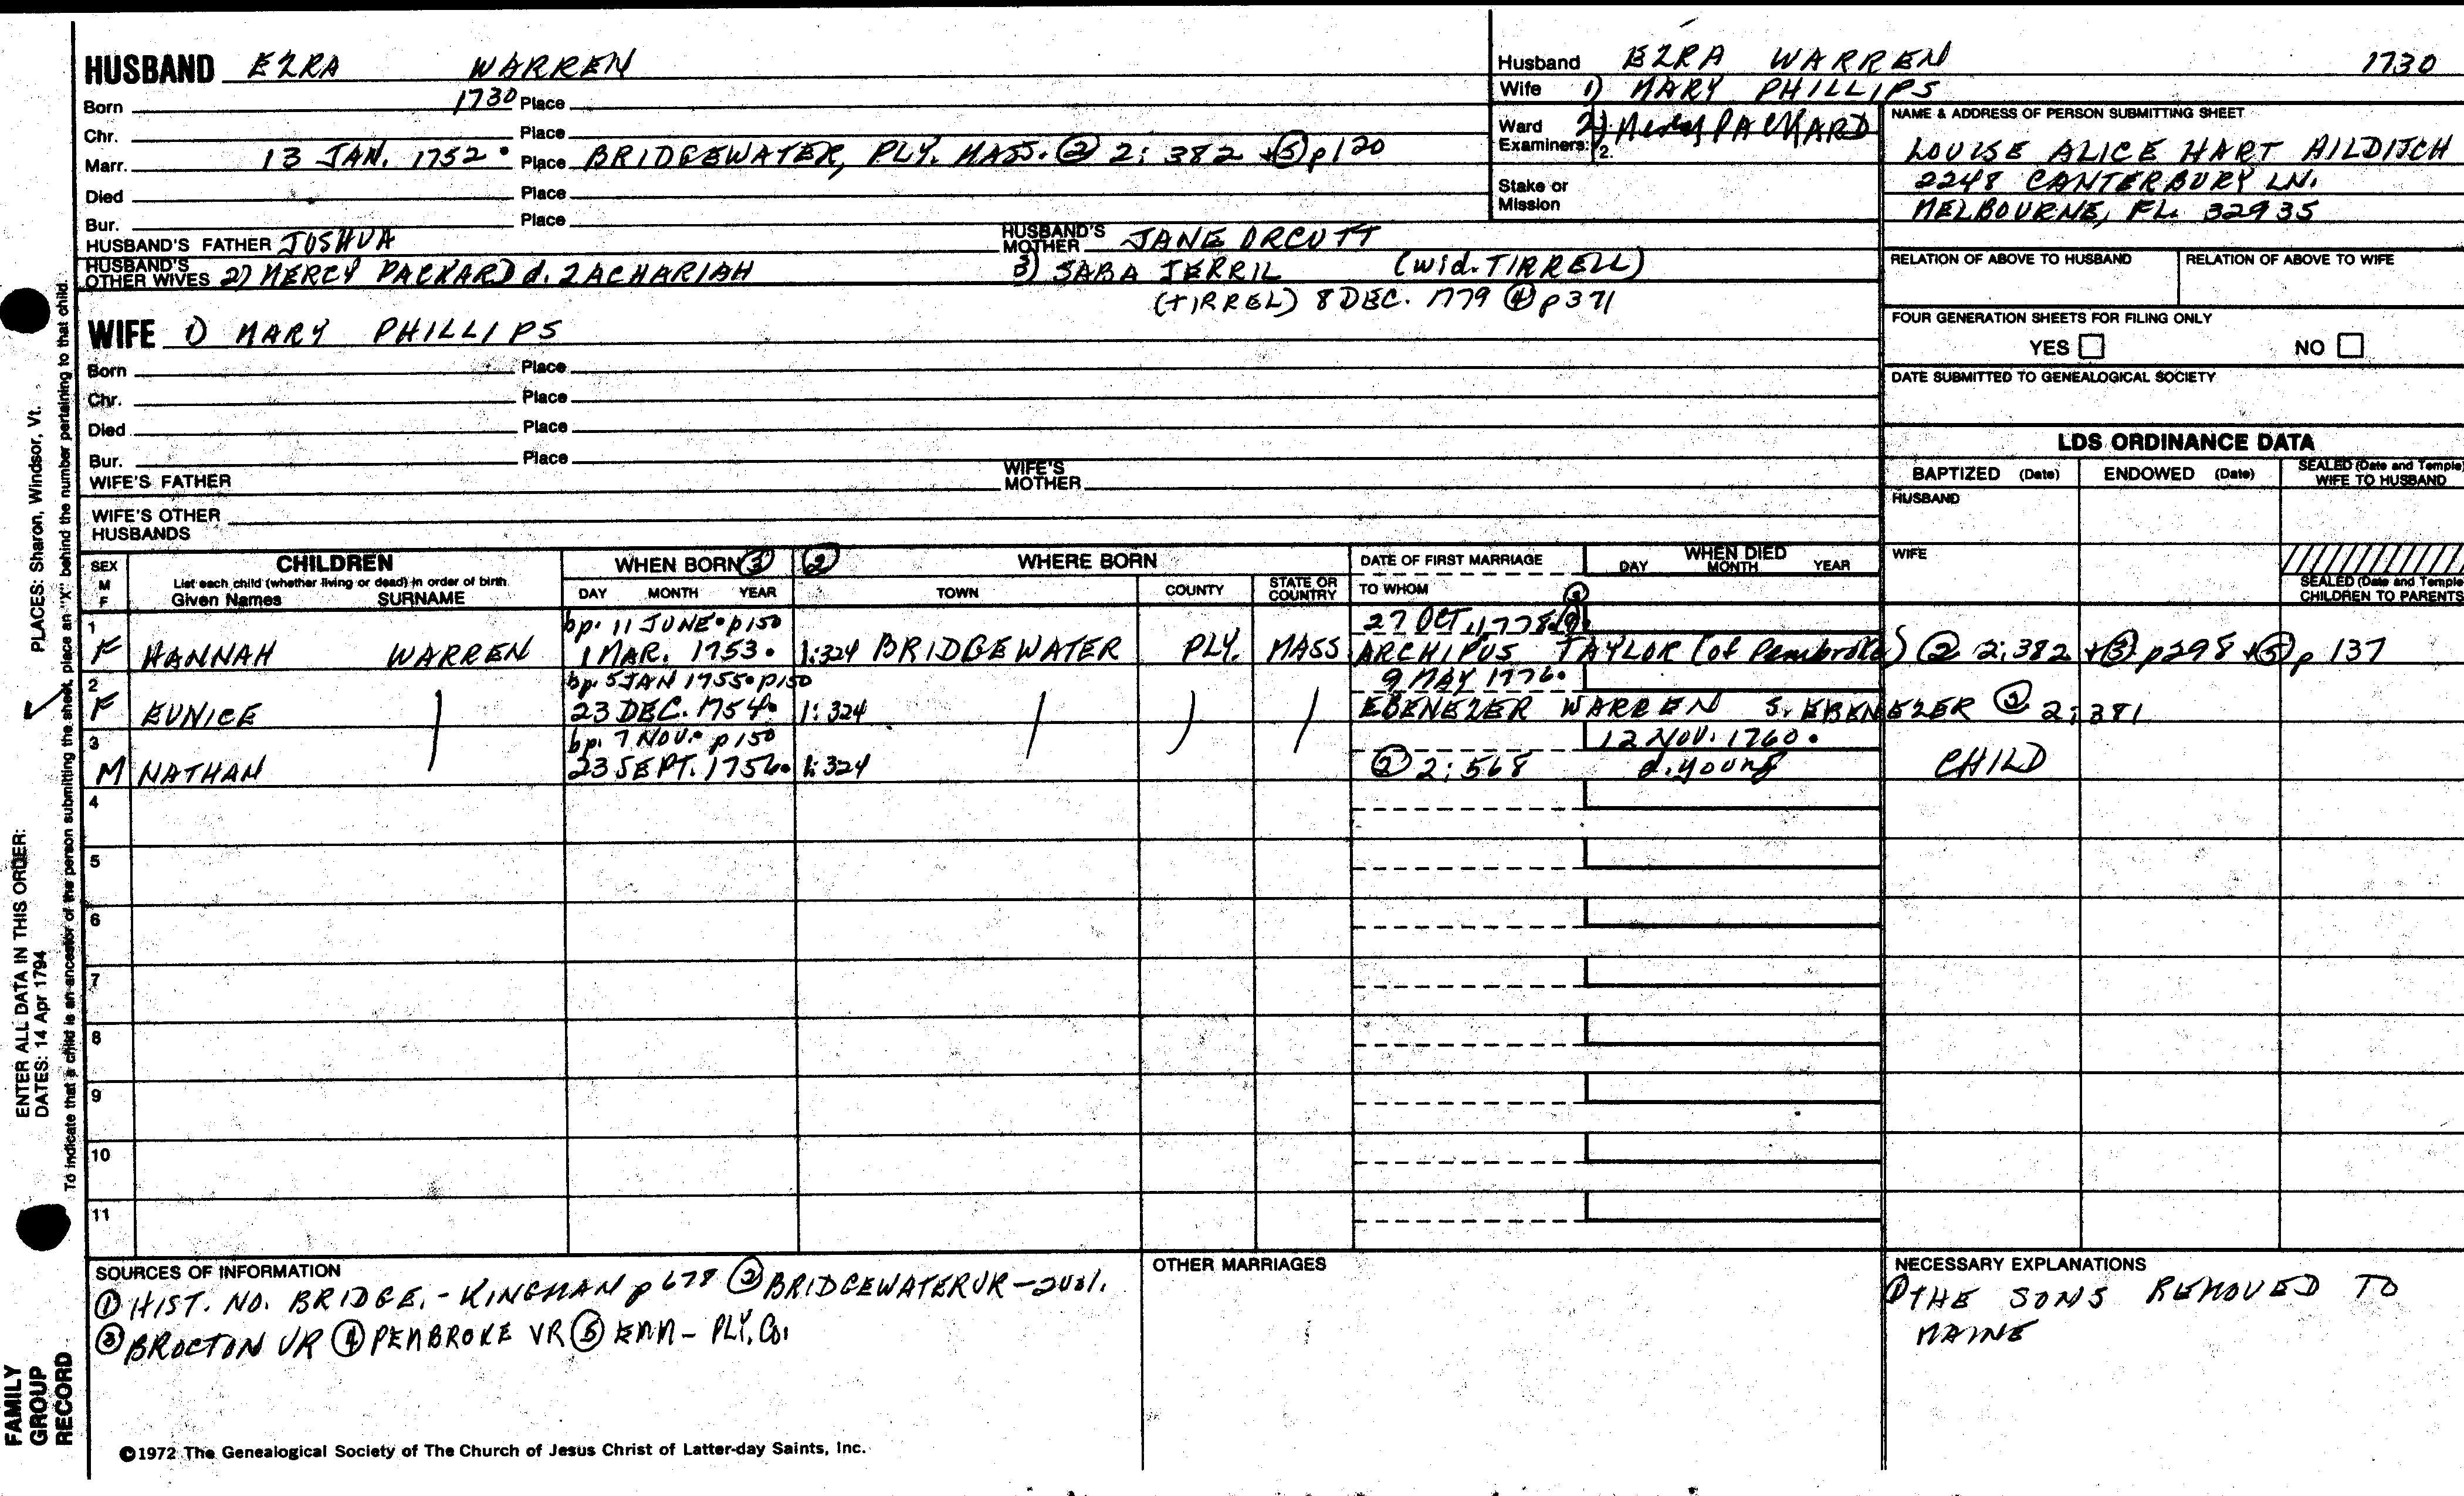 HUSBAND EZRA WARREN
Born 1730 Place
Chr. Place
Marr. 13 JAN. 1752. Place BRIDGEWATER, PLY. MASS. ② 2: 382 + ⑤ p120
Died Place
Bur. Place
HUSBAND'S FATHER JOSHUA HUSBAND'S MOTHER JANE ORCUTT
HUSBAND'S OTHER WIVES 2) MERCY PACKARD d. ZACHARIAH 3) SABA TERRIL (wid. TIRRELL)
(TIRREL) 8 DEC. 1779 ④ p371
Husband EZRA WARREN 1730
Wife 1) MARY PHILLIPS
Ward 2) Mercy PACKARD
Examiners: 2.
Stake or Mission
NAME & ADDRESS OF PERSON SUBMITTING SHEET
LOUISE ALICE HART AILDITCH
2248 CANTERBURY LN.
MELBOURNE, FL. 32935
RELATION OF ABOVE TO HUSBAND RELATION OF ABOVE TO WIFE
FOUR GENERATION SHEETS FOR FILING ONLY
YES NO
DATE SUBMITTED TO GENEALOGICAL SOCIETY
WIFE 1) MARY PHILLIPS
Born Place
Chr. Place
Died Place
Bur. Place
WIFE'S FATHER WIFE'S MOTHER
WIFE'S OTHER HUSBANDS
LDS ORDINANCE DATA
BAPTIZED (Date) ENDOWED (Date) SEALED (Date and Temple) WIFE TO HUSBAND
HUSBAND
WIFE
SEALED (Date and Temple) CHILDREN TO PARENTS
SEX M F
CHILDREN
List each child (whether living or dead) in order of birth
Given Names SURNAME
WHEN BORN ③ ② WHERE BORN
DAY MONTH YEAR TOWN COUNTY STATE OR COUNTRY
DATE OF FIRST MARRIAGE
TO WHOM
WHEN DIED
DAY MONTH YEAR
1 bp. 11 JUNE. p150 27 OCT. 1778
F HANNAH WARREN 1 MAR. 1753. 1:324 BRIDGEWATER PLY. MASS ARCHIPUS TAYLOR (of Pembroke) ② 2:382 + ③ p298 + ⑤ p 137
2 bp. 5 JAN 1755. p150 9 MAY 1776.
F EUNICE 23 DEC. 1754. 1:324 EBENEZER WARREN S. EBENEZER ② 2:381
3 bp. 7 NOV. p150 12 NOV. 1760.
M NATHAN 23 SEPT. 1756. 1:324 ② 2:568 d. young CHILD
4
5
6
7
8
9
10
11
SOURCES OF INFORMATION
① HIST. NO. BRIDGE. - KINGMAN p 678 ② BRIDGEWATER VR - 2vol.
③ BROCTON VR ④ PEMBROKE VR ⑤ EMM - PLY. Co.
OTHER MARRIAGES
NECESSARY EXPLANATIONS
① THE SONS REMOVED TO
MAINE
©1972 The Genealogical Society of The Church of Jesus Christ of Latter-day Saints, Inc.
PLACES: Sharon, Windsor, Vt.
ENTER ALL DATA IN THIS ORDER:
DATES: 14 Apr 1794
To indicate that a child is an ancestor of the person submitting the sheet, place an "X" behind the number pertaining to that child.
FAMILY
GROUP
RECORD